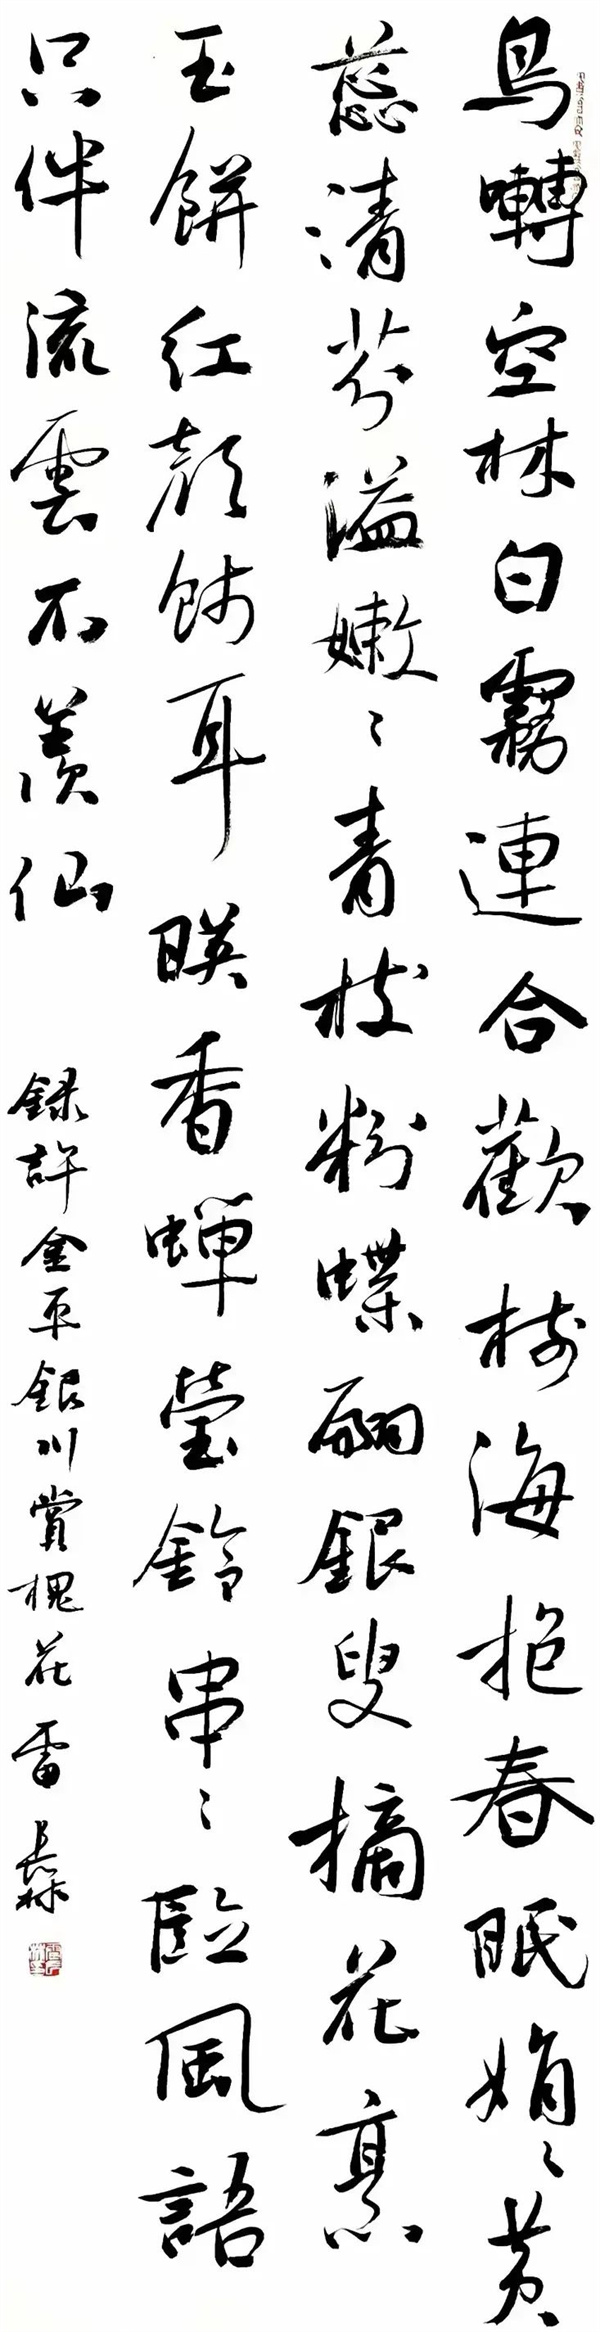 鸟囀空林白霧連合歡樹海抱春眠娟〻黄
蕊清芬溢嫩〻青枝粉蝶翩銀叟摘花烹
玉餅紅顔飾耳暎香蟬瑩鈴串〻臨風語
只伴流雲不羨仙
録許金平銀川賞槐花 雷長林